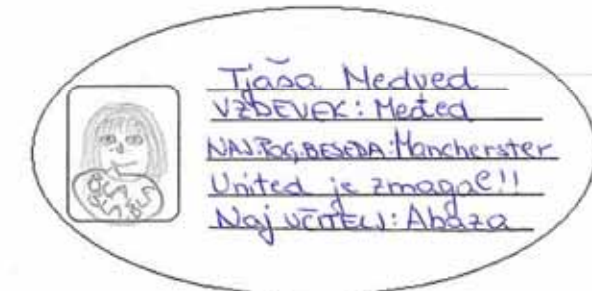 Tjaša Medved
VZDEVEK: Medted
NAJ.POG.BESEDA: Mancherster
United je zmagal!!
Naj UČITELJ: Abaza